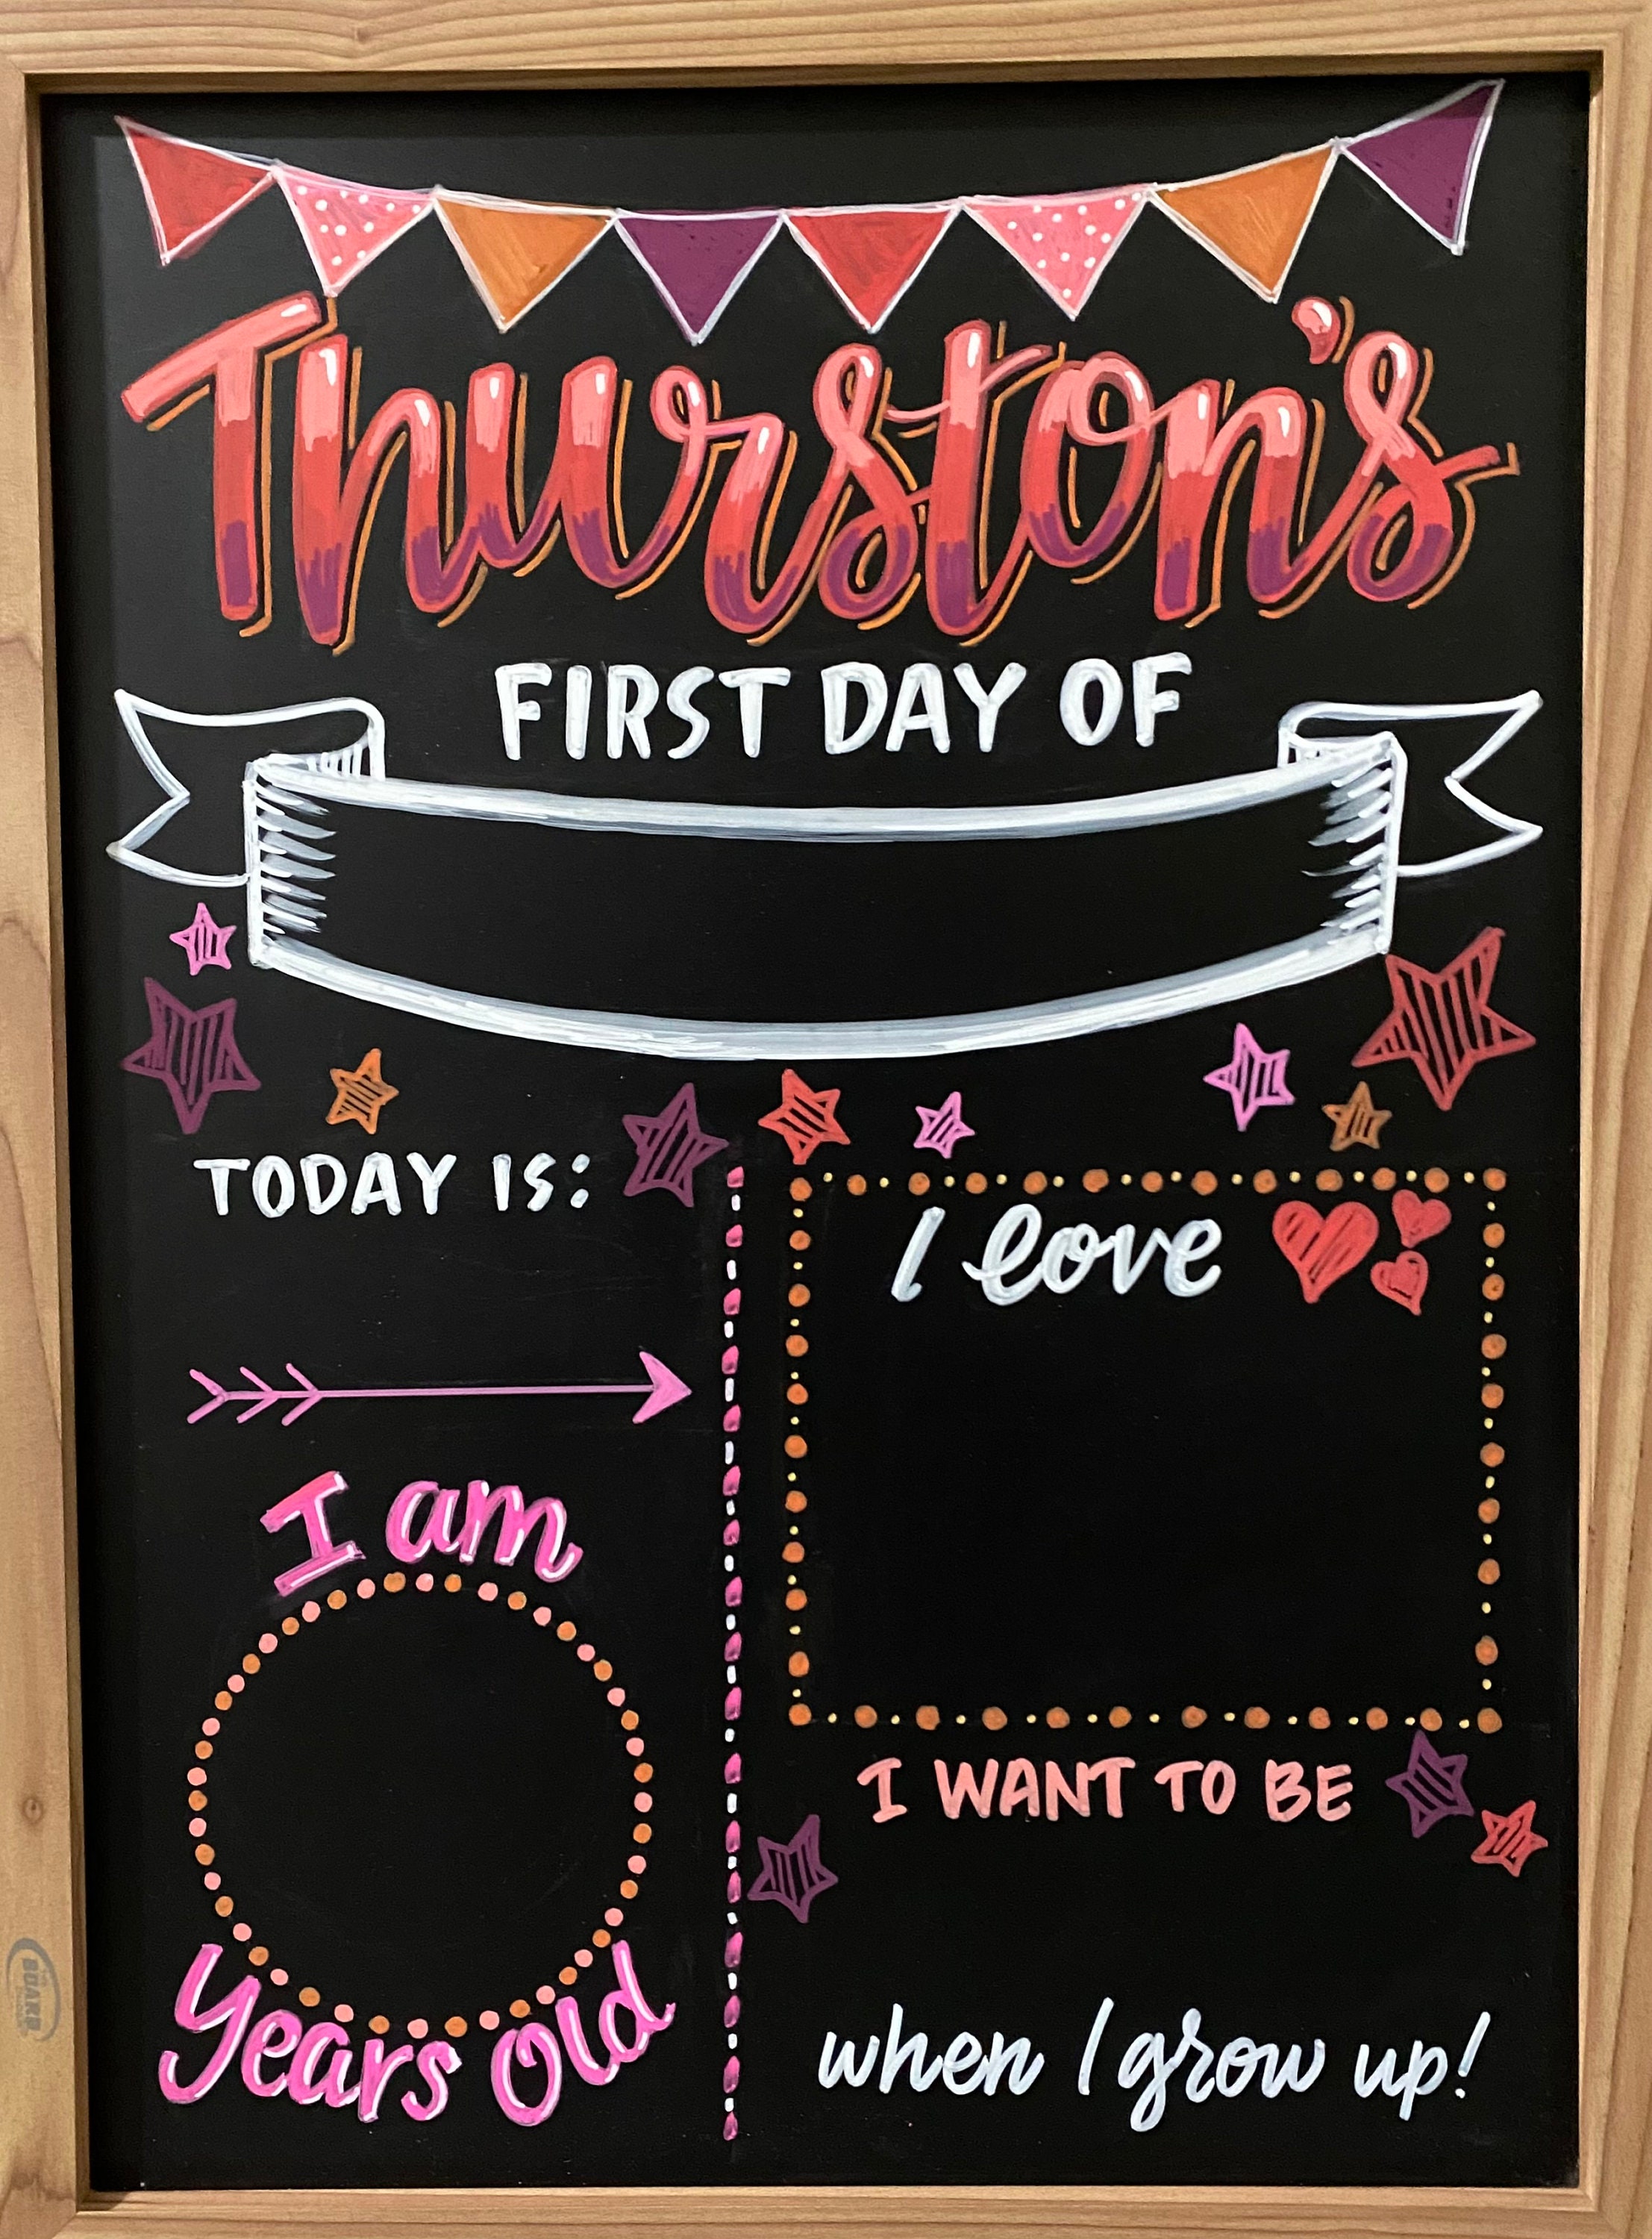 Thurston's
FIRST DAY OF
TODAY IS:
I love
I am
Years Old
I WANT TO BE
when I grow up!
BOARD